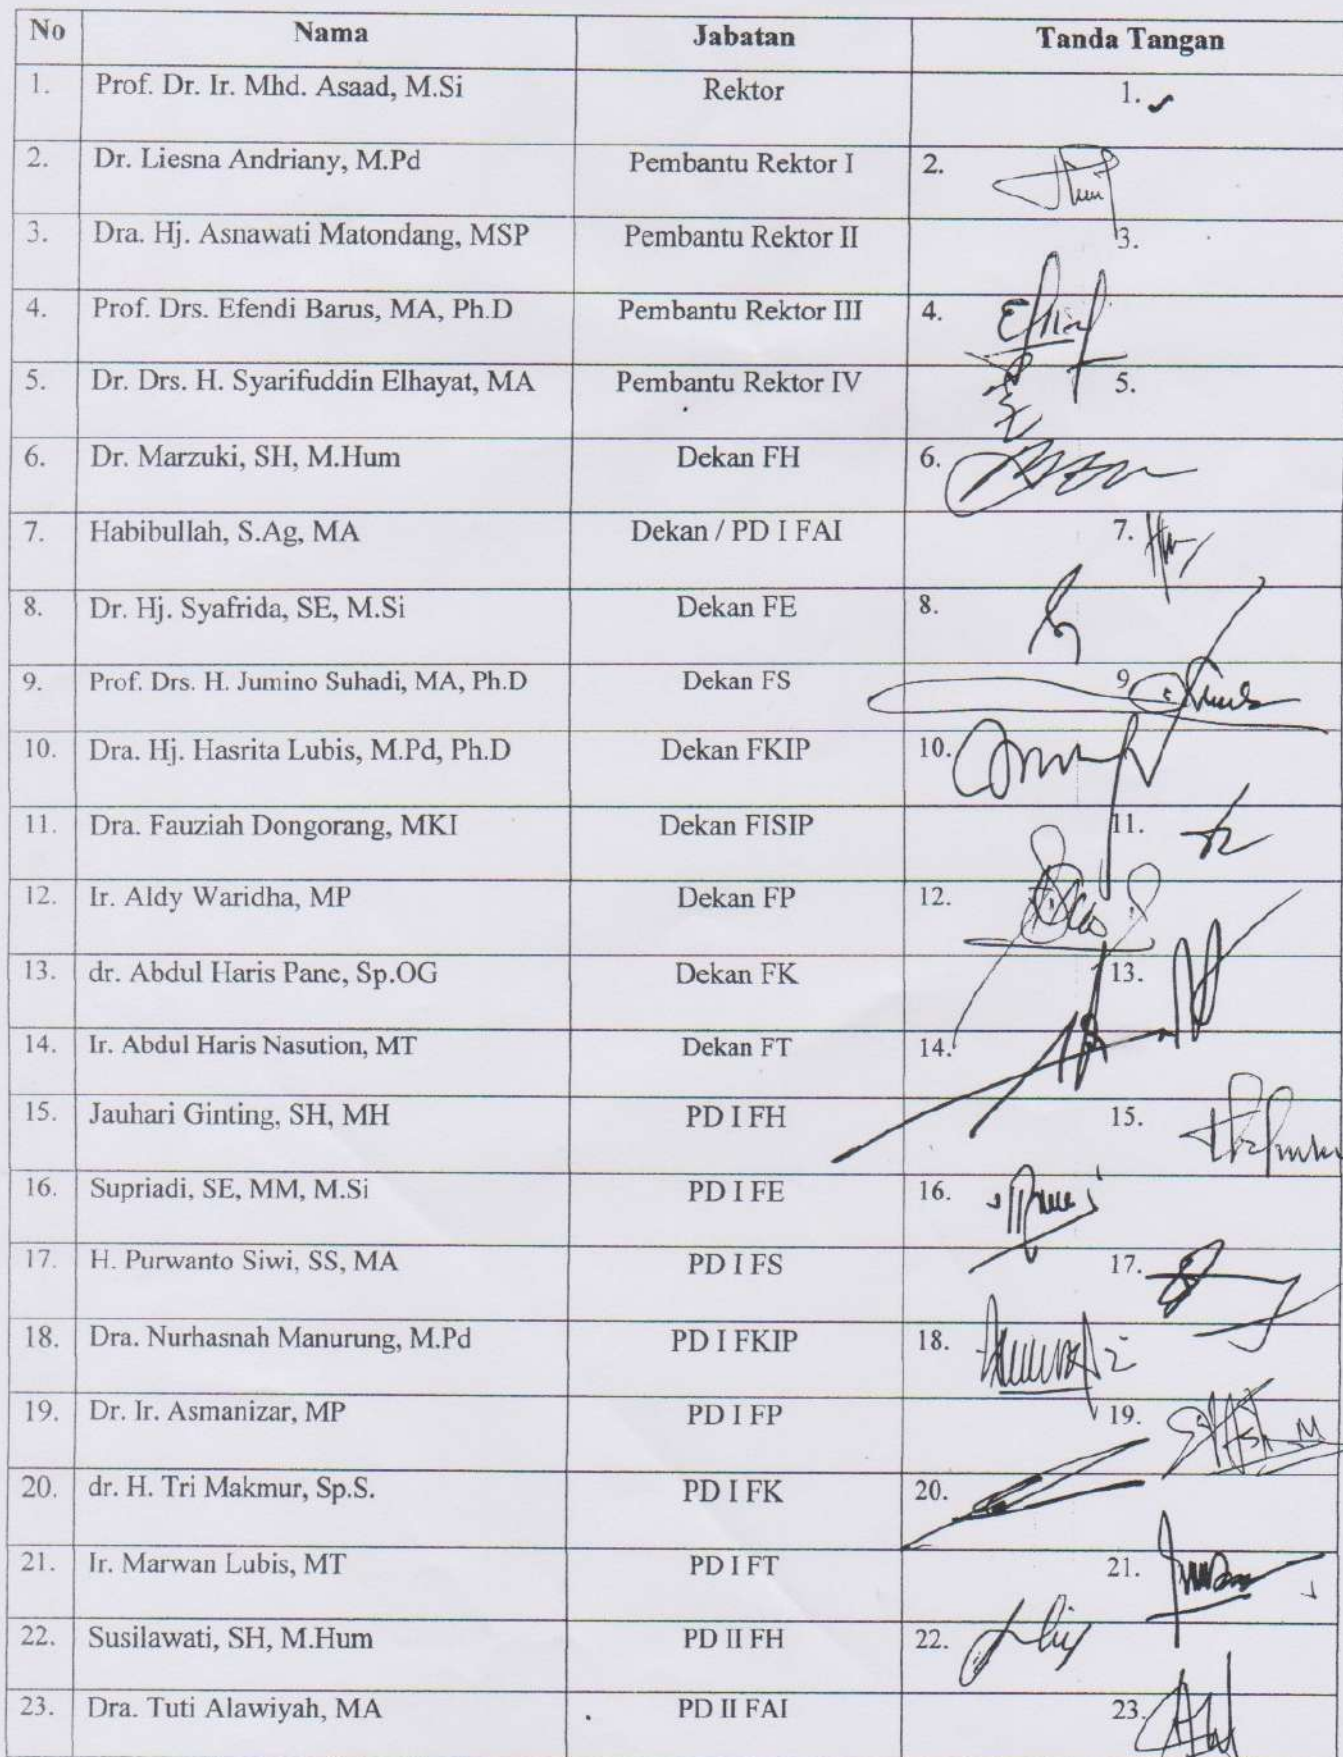 No Nama Jabatan Tanda Tangan
1. Prof. Dr. Ir. Mhd. Asaad, M.Si Rektor 1.
2. Dr. Liesna Andriany, M.Pd Pembantu Rektor I 2.
3. Dra. Hj. Asnawati Matondang, MSP Pembantu Rektor II 3.
4. Prof. Drs. Efendi Barus, MA, Ph.D Pembantu Rektor III 4.
5. Dr. Drs. H. Syarifuddin Elhayat, MA Pembantu Rektor IV 5.
6. Dr. Marzuki, SH, M.Hum Dekan FH 6.
7. Habibullah, S.Ag, MA Dekan / PD I FAI 7.
8. Dr. Hj. Syafrida, SE, M.Si Dekan FE 8.
9. Prof. Drs. H. Jumino Suhadi, MA, Ph.D Dekan FS 9
10. Dra. Hj. Hasrita Lubis, M.Pd, Ph.D Dekan FKIP 10.
11. Dra. Fauziah Dongorang, MKI Dekan FISIP 11.
12. Ir. Aldy Waridha, MP Dekan FP 12.
13. dr. Abdul Haris Pane, Sp.OG Dekan FK 13.
14. Ir. Abdul Haris Nasution, MT Dekan FT 14.
15. Jauhari Ginting, SH, MH PD I FH 15.
16. Supriadi, SE, MM, M.Si PD I FE 16.
17. H. Purwanto Siwi, SS, MA PD I FS 17.
18. Dra. Nurhasnah Manurung, M.Pd PD I FKIP 18.
19. Dr. Ir. Asmanizar, MP PD I FP 19.
20. dr. H. Tri Makmur, Sp.S. PD I FK 20.
21. Ir. Marwan Lubis, MT PD I FT 21.
22. Susilawati, SH, M.Hum PD II FH 22.
23. Dra. Tuti Alawiyah, MA PD II FAI 23.